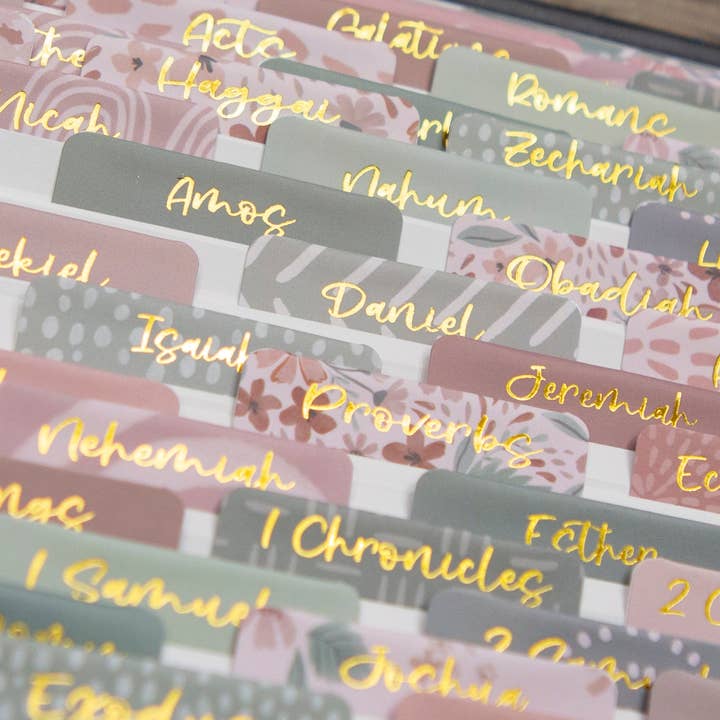 Acts
Galatians
the
Haggai
Romans
Micah
Zechariah
Amos
Nahum
Obadiah
ekiel
Daniel
Isaiah
Jeremiah
Proverbs
Nehemiah
Ec
ngs
1 Chronicles
Esther
1 Samuel
2 C
2 Sam
Joshua
Exodus